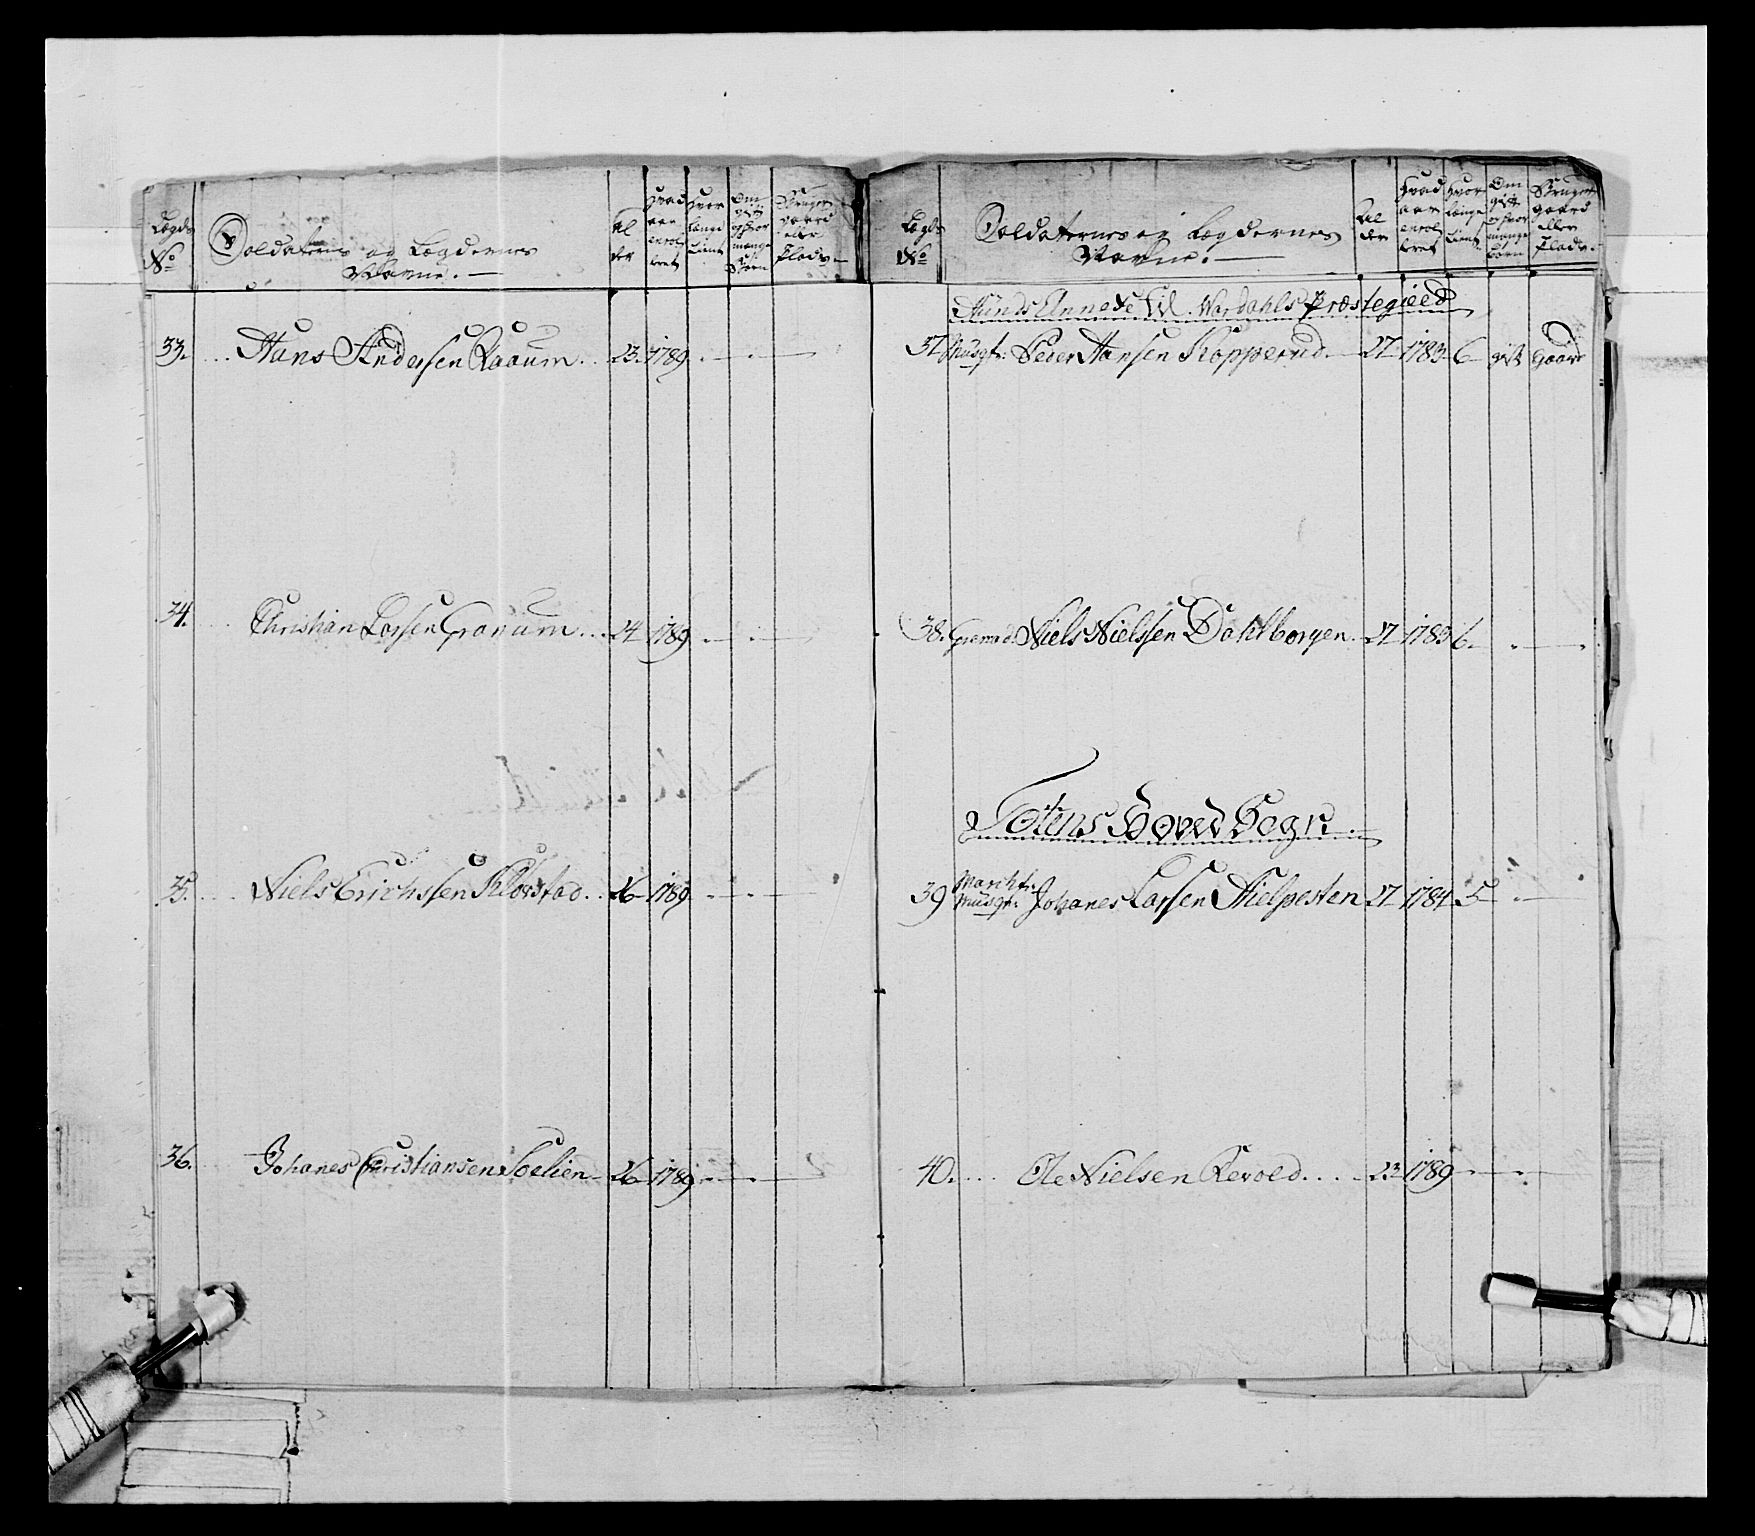 Lægds No
Soldaternes og Lægdernes Navne.
Alder
Hvad aar enrolleret
Hvor længe tient
Om gift og hvor mange Børn
Bruger gaard eller Plads
33. Hans Andersen Raaum. 23. 1789
34. Christian Larsen Granum 24 1789
35. Niels Erichssen Klovstad 26 1789
36. Johanes Christiansen Soelien 26 1789
Lægds No
Soldaternes og Lægdernes Navne.
Alder
Hvad aar enrolleret
Hvor længe tient
Om gift og hvor mange børn
Bruger gaard eller Plads
Hunds Annexe til Wardahls Præstegield
37 Musqt: Peder Hansen Kopperud 27 1783 6 gift gaard
38. Grenad: Niels Nielssen Dahlborgen 27 1783 6.
Totens Hoved Sogn
39 Musqt: Johanes Larssen Hielpesten 27 1784 5
40. Ole Nielsen Revold 23 1789